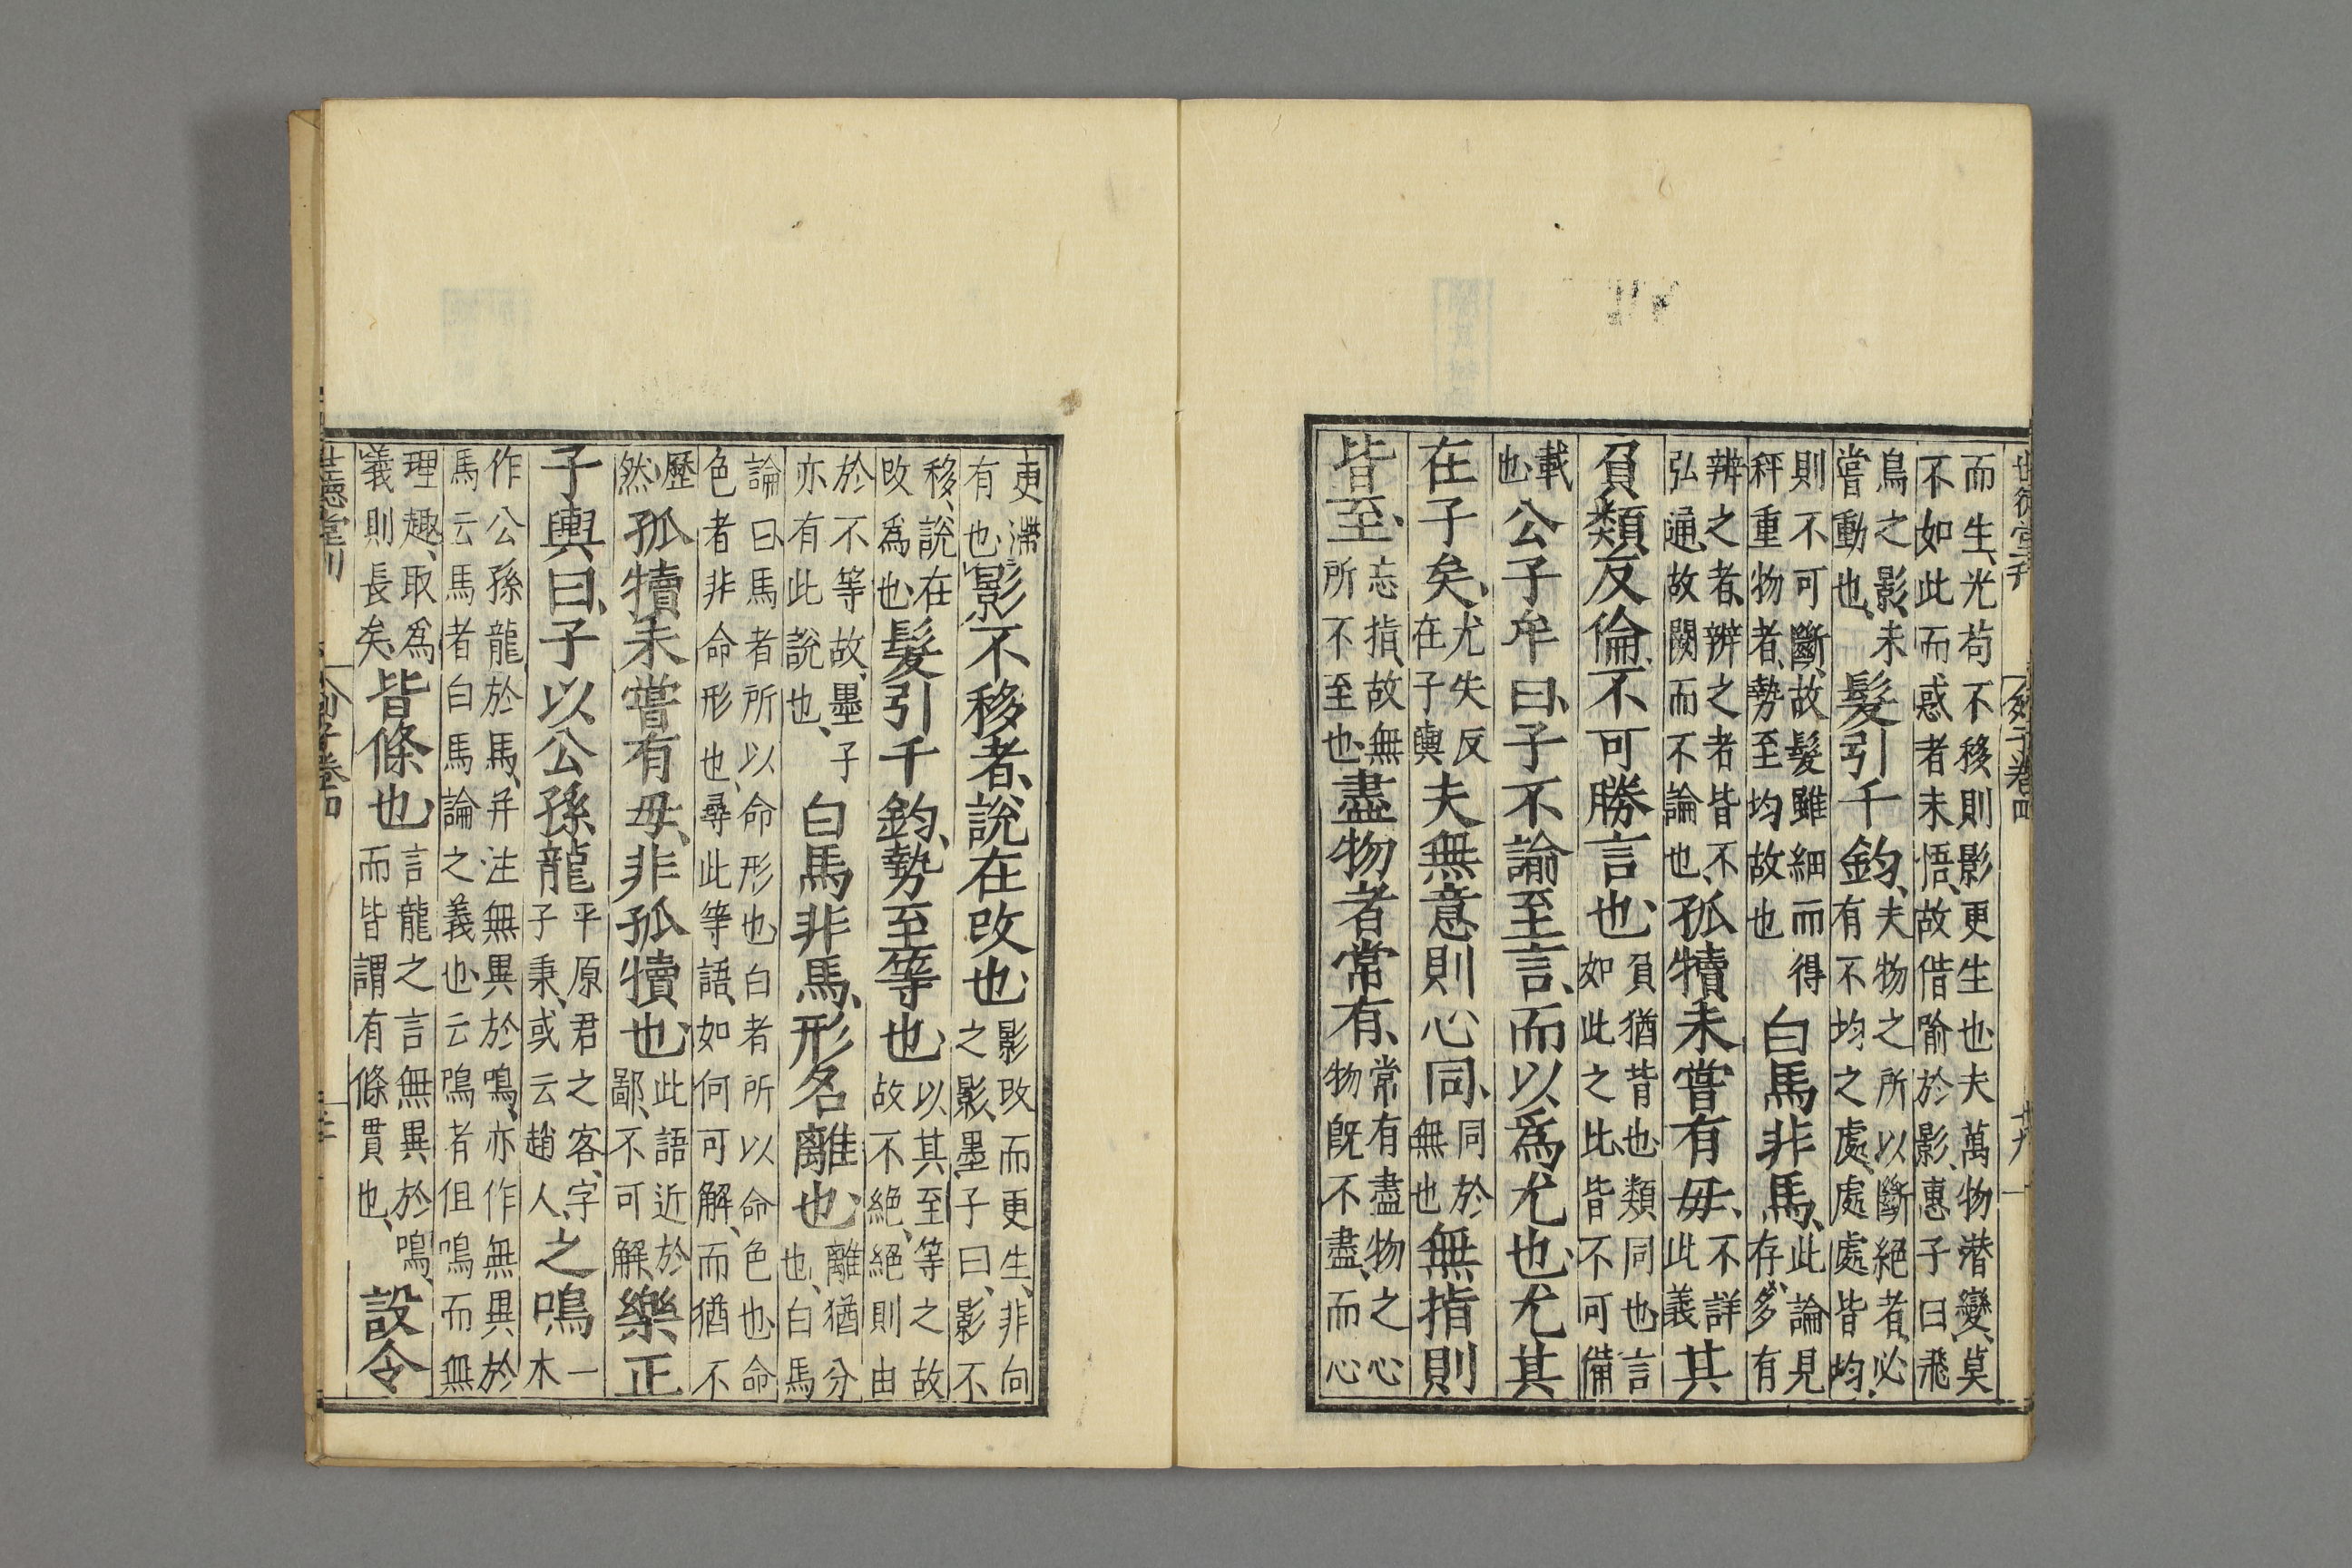 世德堂刊 列子卷四 十九
而生、光苟不移則影更生也夫萬物潜變、莫
不如此而惑者未悟、故借喻於影、惠子曰飛
鳥之影、未
嘗動也、
髮引千鈞、
夫物之所以斷絕者、必
有不均之處、處處皆均、
則不可斷、故髮雖細而得
秤重物者、勢至均故也
白馬非馬、
此論見
存、多有
辨之者、辨之者皆不
弘通、故闕而不論也、
孤犢未嘗有毋、
不詳
此義
其
負類反倫、不可勝言也、
負猶背也、類同也、言
如此之比、皆不可備
載
也、
公子牟曰、子不諭至言、而以爲尤也、尤其
在子矣、
尤失反
在子輿
夫無意則心同、
同於
無也
無指則
皆至、
忘指、故無
所不至也、
盡物者常有、
常有盡物之心
物既不盡、而心
更滯
有也、
影不移者、說在改也、
影改而更生、非向
之影、墨子曰、影不
移、說在
改爲也、
髮引千鈞、勢至等也、
以其至等之故
故不絕、絕則由
於不等故、墨子
亦有此說也、
白馬非馬、形名離也、
離猶分
也、白馬
論曰、馬者所以命形也、白者所以命色也、命
色者非命形也、尋此等語、如何可解、而猶不
歷
然、
孤犢未嘗有毋、非孤犢也、
此語近於
鄙、不可解、
樂正
子輿曰、子以公孫龍
平原君之客、字
子秉、或云趙人、
之鳴
一
木
作公孫龍於馬、并注無異於鳴、亦作無異於
馬云馬者白馬論之義也、云鳴者但鳴而無
理趣、取爲
義則長矣、
皆條也
言龍之言無異於鳴、
而皆謂有條貫也、
設令
世德堂刊 列子卷四 二十